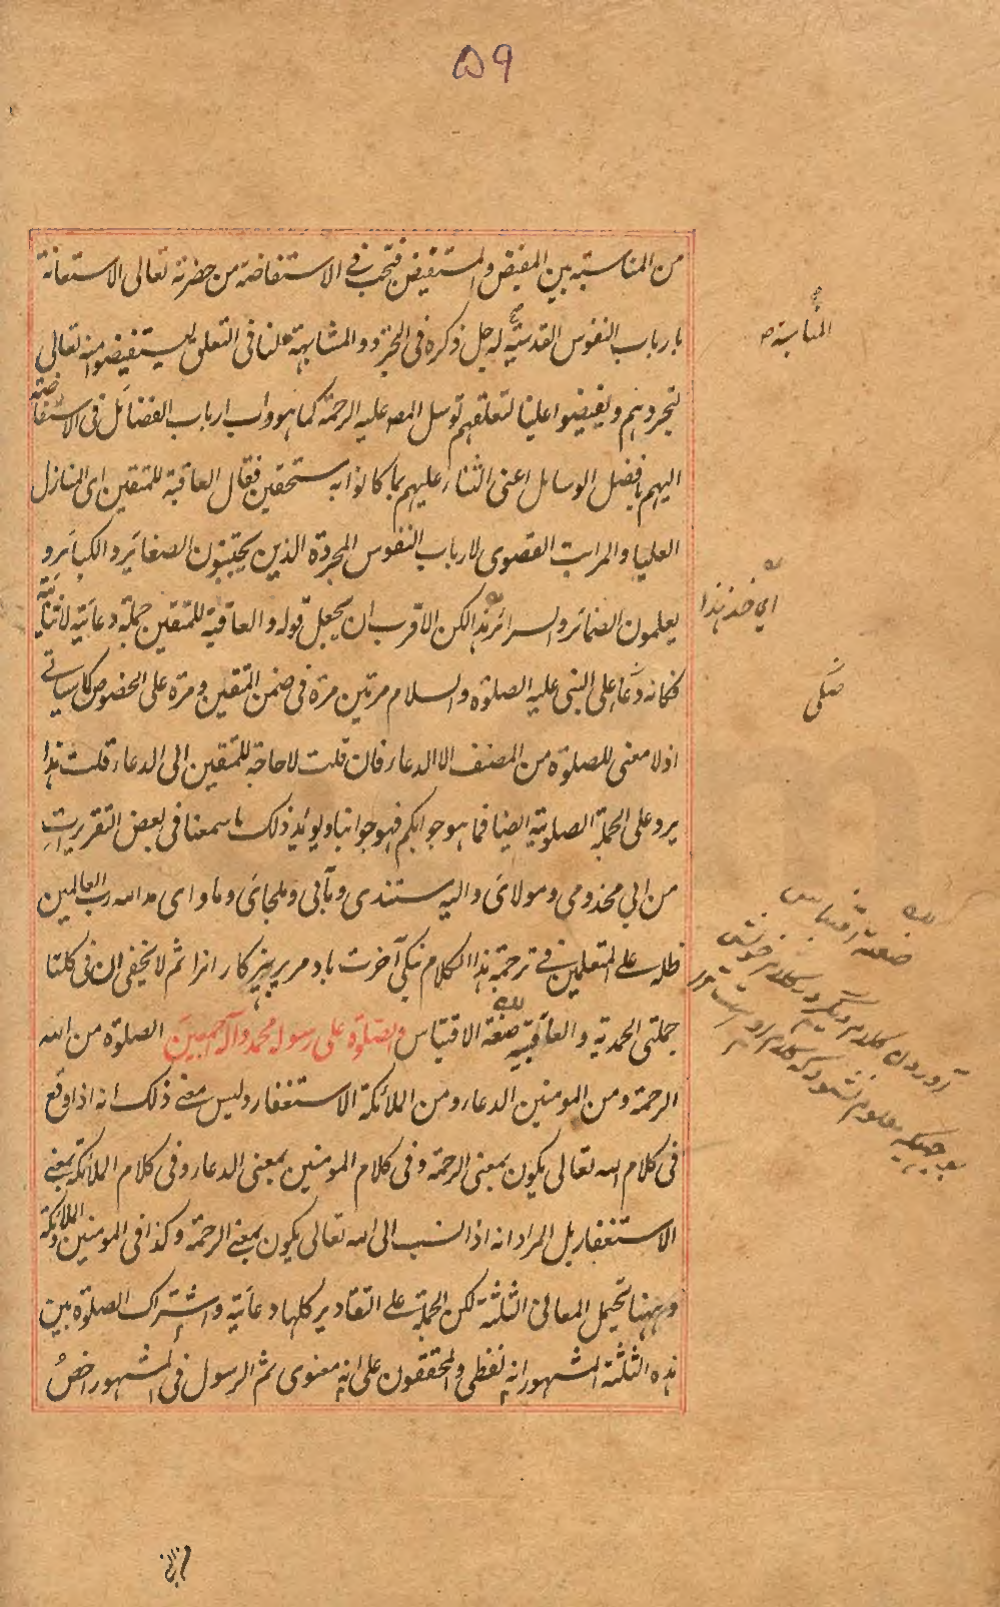 ٥٩
من المناسبة بين المفيض والمستفيض فتجب في الاستفاضة من حضرته تعالى الاستعانة
بارباب النفوس القدسية له جل ذكره في التجرد والمشابهة لنا في التعلق ليستفيضوا منه تعالى
لتجردهم ويفيضوا علينا لتعلقهم توسل المصه عليه الرحمة كما هو داب ارباب الفضائل في الاستفاضة
اليهم بافضل الوسايل اعنى الثناء عليهم بما كانوا به مستحقين فقال العاقبة للمتقين اى المنازل
العليا والمراتب القصوى لارباب النفوس المجردة الذين يجتنبون الصغائر والكبائر و
يعلمون الضمائر والسرائر هذا لكن الاقرب ان يجعل قوله و العاقبة للمتقين جملة دعائية لا ثنائية
فكانه دعا على النبى عليه الصلوة والسلام مرتين مرة في ضمن المتقين و مرة على الخصوص كما سياتى
اذ لا معنى للصلوة من المصنف الا الدعاء فان قلت لا حاجة للمتقين الى الدعاء قلت هذا
يرد على الجملة الصلوتية ايضا فما هو جوابكم فهو جوابنا ويؤيد ذلك ما سمعنا في بعض التقريرات
من ابي مخدومى ومولائ واليه ستندى و مآبى و ملجائ و ماواى مد الله رب العالمين
ظله على المتعلمين في ترجمة هذا الكلام نيكى آخرت باد مر پرهيزكارانرا ثم لا يخفى ان في كلتا
جملتى الحمدية و العاقبية صنعة الاقتباس والصلوة على رسوله محمد وآله اجمعين الصلوة من الله
الرحمة ومن المومنين الدعاء ومن الملائكة الاستغفار وليس معنى ذلك انه اذا وقع
فى كلام الله تعالى يكون بمعنى الرحمة وفى كلام المومنين بمعنى الدعاء وفى كلام الملائكة بمعنى
الاستغفار بل المراد انه اذا نسب الى الله تعالى يكون بمعنى الرحمة وكذا فى المومنين والملائكة
وههنا تحتمل المعانى الثلثة لكن الجملة على التقادير كلها دعائية و اشتراك الصلوة بين
هذه الثلثة المشهور انه لفظى والمحققون على انه معنوى ثم الرسول فى المشهور اخص
المناسبة ص
اي خذ هذا
صنعت اقتباس
آوردن كلام ديگر در كلام خويش
بوجهيكه معلوم نشود كه كلام او ست